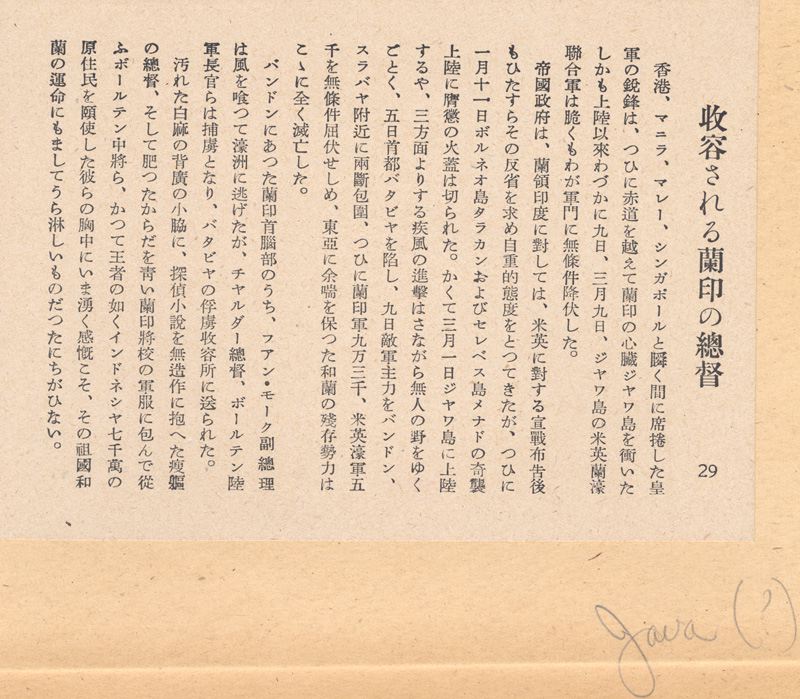 收容される蘭印の總督
29
香港、マニラ、マレー、シンガポールと瞬く間に席捲した皇
軍の銳鋒は、つひに赤道を越えて蘭印の心臟ジャワ島を衝いた
しかも上陸以來わづかに九日、三月九日、ジャワ島の米英蘭濠
聯合軍は脆くもわが軍門に無條件降伏した。
帝國政府は、蘭領印度に對しては、米英に對する宣戰布吿後
もひたすらその反省を求め自重的態度をとつてきたが、つひに
一月十一日ボルネオ島タラカンおよびセレベス島メナドの奇襲
上陸に膺懲の火蓋は切られた。かくて三月一日ジャワ島に上陸
するや、三方面よりする疾風の進擊はさながら無人の野をゆく
ごとく、五日首都バタビヤを陷し、九日敵軍主力をバンドン、
スラバヤ附近に兩斷包圍、つひに蘭印軍九万三千、米英濠軍五
千を無條件屈伏せしめ、東亞に余喘を保つた和蘭の殘存勢力は
こゝに全く滅亡した。
バンドンにあつた蘭印首腦部のうち、フアン・モーク副總理
は風を喰つて濠洲に逃げたが、チャルダー總督、ボールテン陸
軍長官らは捕虜となり、バタビヤの俘虜收容所に送られた。
汚れた白麻の背廣の小脇に、探偵小說を無造作に抱へた瘦軀
の總督、そして肥つたからだを靑い蘭印將校の軍服に包んで從
ふボールテン中將ら、かつて王者の如くインドネシヤ七千萬の
原住民を頤使した彼らの胸中にいま湧く感慨こそ、その祖國和
蘭の運命にもましてうら淋しいものだつたにちがひない。
Java (?)